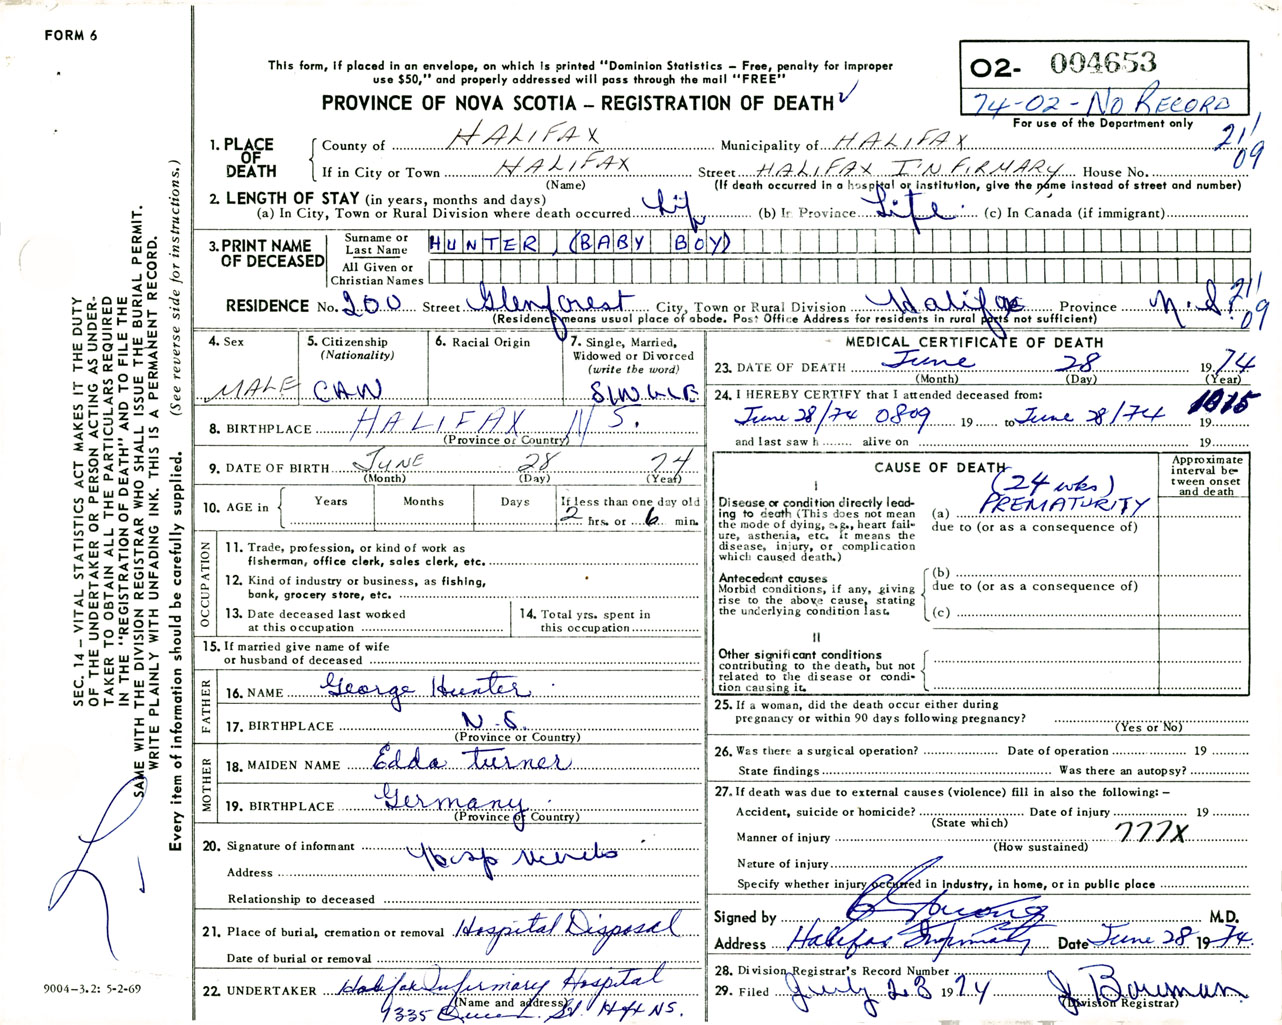 FORM 6
This form, if placed in an envelope, on which is printed "Dominion Statistics – Free, penalty for improper
use $50," and properly addressed will pass through the mail "FREE"
PROVINCE OF NOVA SCOTIA – REGISTRATION OF DEATH
02- 004653
74-02-NO RECORD
For use of the Department only
21/09
1. PLACE OF DEATH
County of HALIFAX Municipality of HALIFAX
If in City or Town HALIFAX Street HALIFAX INFIRMARY House No.
(Name) (If death occurred in a hospital or institution, give the name instead of street and number)
2. LENGTH OF STAY (in years, months and days)
(a) In City, Town or Rural Division where death occurred Life (b) In Province Life (c) In Canada (if immigrant)
3. PRINT NAME OF DECEASED
Surname or Last Name HUNTER, (BABY BOY)
All Given or Christian Names
RESIDENCE No. 200 Street Glenforest City, Town or Rural Division Halifax Province N.S. 21/09
(Residence means usual place of abode. Post Office Address for residents in rural parts not sufficient)
4. Sex MALE
5. Citizenship (Nationality) CAN
6. Racial Origin
7. Single, Married, Widowed or Divorced (write the word) SINGLE
8. BIRTHPLACE HALIFAX N.S.
(Province or Country)
9. DATE OF BIRTH JUNE 28 74
(Month) (Day) (Year)
10. AGE in Years Months Days If less than one day old
2 hrs. or 6 min.
OCCUPATION
11. Trade, profession, or kind of work as
fisherman, office clerk, sales clerk, etc.
12. Kind of industry or business, as fishing,
bank, grocery store, etc.
13. Date deceased last worked
at this occupation
14. Total yrs. spent in
this occupation
15. If married give name of wife
or husband of deceased
FATHER
16. NAME George Hunter
17. BIRTHPLACE N.S.
(Province or Country)
MOTHER
18. MAIDEN NAME Edda Turner
19. BIRTHPLACE Germany
(Province or Country)
20. Signature of informant Hosp
Address
Relationship to deceased
21. Place of burial, cremation or removal Hospital Disposal
Date of burial or removal
22. UNDERTAKER Halifax Infirmary Hospital
(Name and address)
Queen St. Hfx N.S.
MEDICAL CERTIFICATE OF DEATH
23. DATE OF DEATH June 28 1974
(Month) (Day) (Year)
24. I HEREBY CERTIFY that I attended deceased from:
June 28/74 0809 19 to June 28/74 1015 19
and last saw h alive on 19
CAUSE OF DEATH
Approximate interval between onset and death
I
Disease or condition directly lead-
ing to death (This does not mean
the mode of dying, e.g., heart fail-
ure, asthenia, etc. It means the
disease, injury, or complication
which caused death.)
(24 wks)
(a) PREMATURITY
due to (or as a consequence of)
Antecedent causes
Morbid conditions, if any, giving
rise to the above cause, stating
the underlying condition last.
(b)
due to (or as a consequence of)
(c)
II
Other significant conditions
contributing to the death, but not
related to the disease or condi-
tion causing it.
25. If a woman, did the death occur either during
pregnancy or within 90 days following pregnancy?
(Yes or No)
26. Was there a surgical operation? Date of operation 19
State findings Was there an autopsy?
27. If death was due to external causes (violence) fill in also the following: –
Accident, suicide or homicide? Date of injury 19
(State which)
Manner of injury 777X
(How sustained)
Nature of injury
Specify whether injury occurred in industry, in home, or in public place
Signed by M.D.
Address Halifax Infirmary Date June 28 1974.
28. Division Registrar's Record Number
29. Filed July 23 1974 J Bowman
(Division Registrar)
SEC. 14 – VITAL STATISTICS ACT MAKES IT THE DUTY
OF THE UNDERTAKER OR PERSON ACTING AS UNDER-
TAKER TO OBTAIN ALL THE PARTICULARS REQUIRED
IN THE "REGISTRATION OF DEATH" AND TO FILE THE
SAME WITH THE DIVISION REGISTRAR WHO SHALL ISSUE THE BURIAL PERMIT.
WRITE PLAINLY WITH UNFADING INK. THIS IS A PERMANENT RECORD.
Every item of information should be carefully supplied. (See reverse side for instructions.)
9004-3.2: 5-2-69